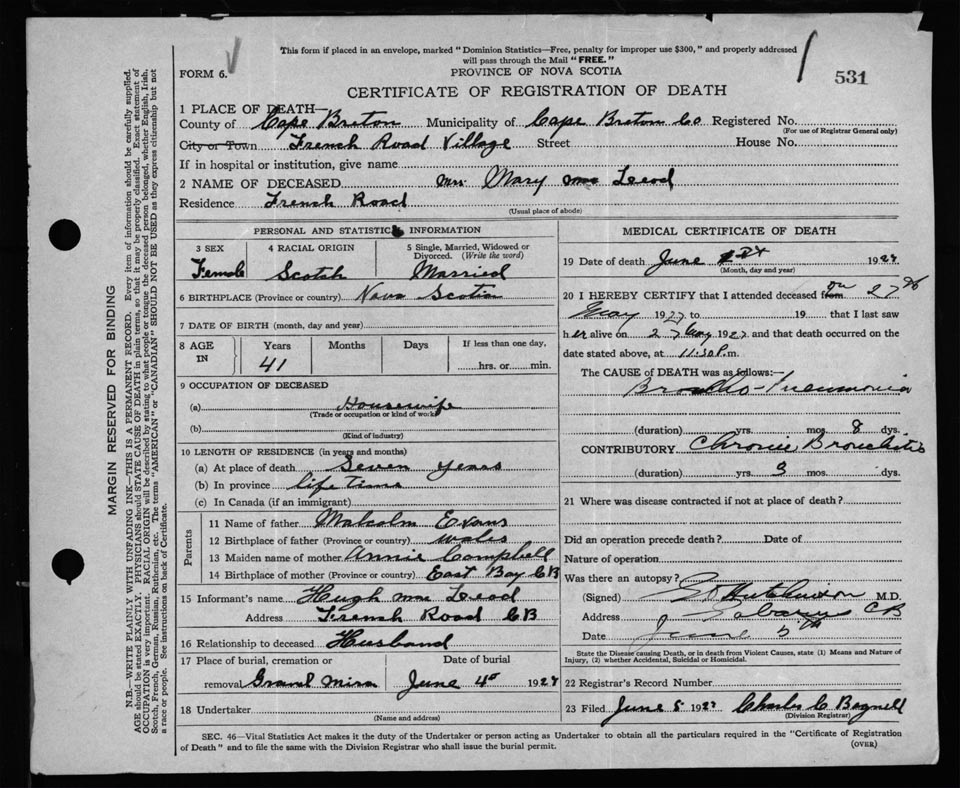 This form if placed in an envelope, marked "Dominion Statistics—Free, penalty for improper use $300," and properly addressed
will pass through the Mail "FREE."
FORM 6.
PROVINCE OF NOVA SCOTIA
531
CERTIFICATE OF REGISTRATION OF DEATH
1 PLACE OF DEATH—
County of Cape Breton Municipality of Cape Breton Co Registered No.
(For use of Registrar General only)
City or Town French Road Village Street House No.
If in hospital or institution, give name
2 NAME OF DECEASED Mrs Mary Mac Leod
Residence French Road
(Usual place of abode)
PERSONAL AND STATISTICAL INFORMATION
3 SEX 4 RACIAL ORIGIN 5 Single, Married, Widowed or Divorced. (Write the word)
Female Scotch Married
6 BIRTHPLACE (Province or country) Nova Scotia
7 DATE OF BIRTH (month, day and year)
8 AGE IN Years Months Days If less than one day,
41 hrs. or min.
9 OCCUPATION OF DECEASED
(a) Housewife
(Trade or occupation or kind of work)
(b)
(Kind of industry)
10 LENGTH OF RESIDENCE (in years and months)
(a) At place of death Seven years
(b) In province life Time
(c) In Canada (if an immigrant)
Parents
11 Name of father Malcolm Evans
12 Birthplace of father (Province or country) Wales
13 Maiden name of mother Annie Campbell
14 Birthplace of mother (Province or country) East Bay C B
15 Informant's name Hugh Mac Leod
Address French Road C B
16 Relationship to deceased Husband
17 Place of burial, cremation or Date of burial
removal Grand Mira June 4 1927
18 Undertaker
(Name and address)
MEDICAL CERTIFICATE OF DEATH
19 Date of death June 1927
(Month, day and year)
20 I HEREBY CERTIFY that I attended deceased from on 27th
May 1927 to 19 that I last saw
her alive on 27 May 1927 and that death occurred on the
date stated above, at 11.30 P.m.
The CAUSE OF DEATH was as follows:—
Broncho-Pneumonia
(duration) yrs. mos. 8 dys.
CONTRIBUTORY Chronic Bronchitis
(duration) yrs. 3 mos. dys.
21 Where was disease contracted if not at place of death?
Did an operation precede death? Date of
Nature of operation
Was there an autopsy?
(Signed) Hutchinson M.D.
Address Gabarus CB
Date June 5th
State the Disease causing Death, or in death from Violent Causes, state (1) Means and Nature of
Injury, (2) whether Accidental, Suicidal or Homicidal.
22 Registrar's Record Number
23 Filed June 5 1927 Charles C Bagnell
(Division Registrar)
SEC. 46—Vital Statistics Act makes it the duty of the Undertaker or person acting as Undertaker to obtain all the particulars required in the "Certificate of Registration
of Death" and to file the same with the Division Registrar who shall issue the burial permit.
(OVER)
MARGIN RESERVED FOR BINDING
N.B.—WRITE PLAINLY WITH UNFADING INK—THIS IS A PERMANENT RECORD. Every item of information should be carefully supplied.
AGE should be stated EXACTLY. PHYSICIANS should STATE CAUSE OF DEATH in plain terms, so that it may be properly classified. Exact statement of
OCCUPATION is very important. RACIAL ORIGIN will be described by stating to what people or tongue the deceased person belonged, whether English, Irish,
Scotch, French, German, Russian, Ruthenian, etc. The terms "AMERICAN" or "CANADIAN" SHOULD NOT BE USED as they express citizenship but not
a race or people. See instructions on back of Certificate.